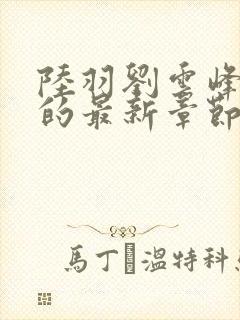 陸羽劉雲峰
的最新章節
馬丁 溫特科